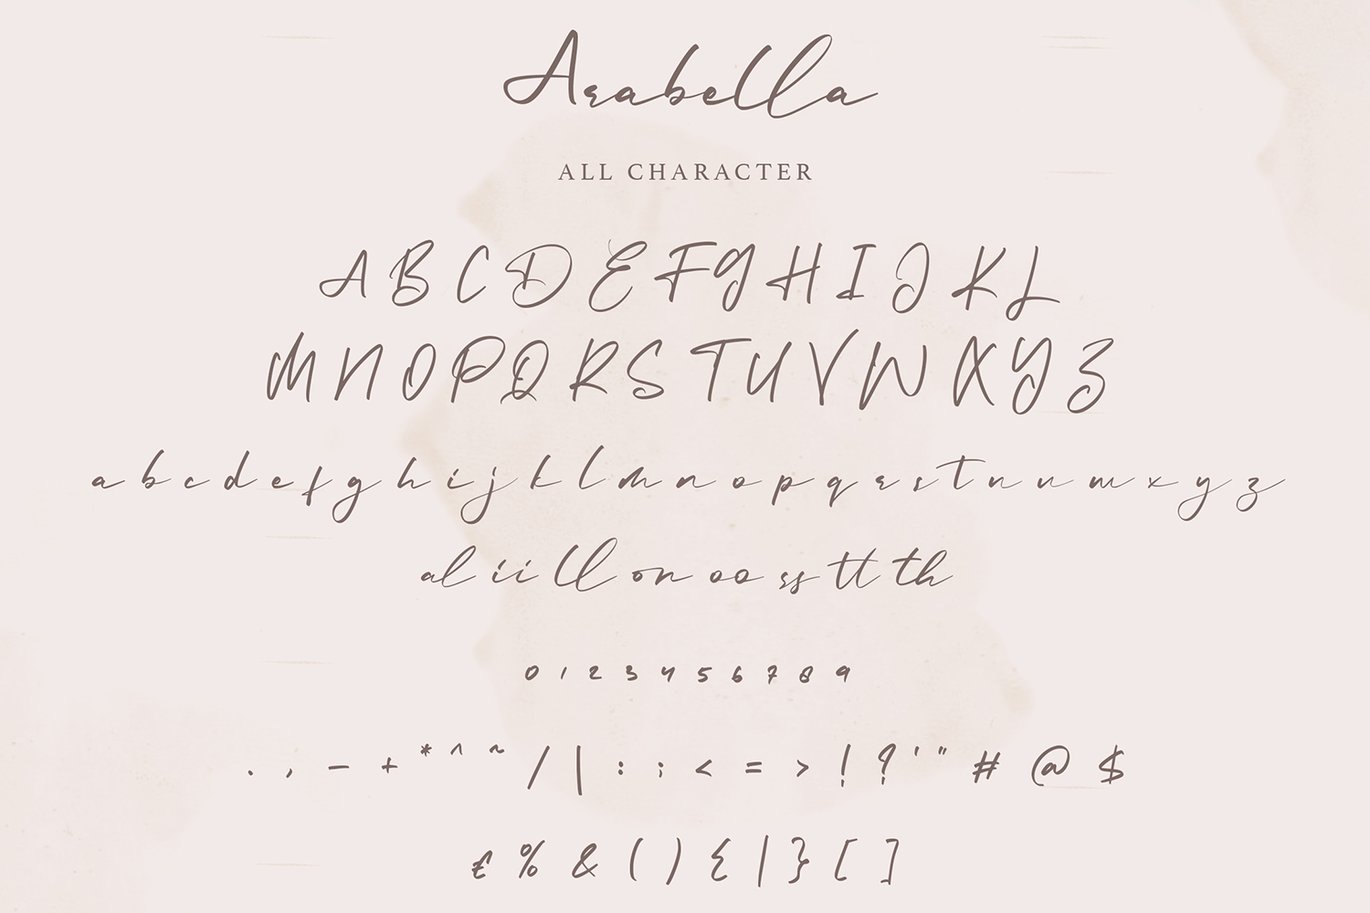 Arabella
ALL CHARACTER
A B C D E F G H I J K L
M N O P Q R S T U V W X Y Z
a b c d e f g h i j k l m n o p q r s t u v w x y z
al ii ll on oo ss tt th
0 1 2 3 4 5 6 7 8 9
. , - + * ^ ~ / | : ; < = > ! ? ' " # @ $
€ % & ( ) { | } [ ]